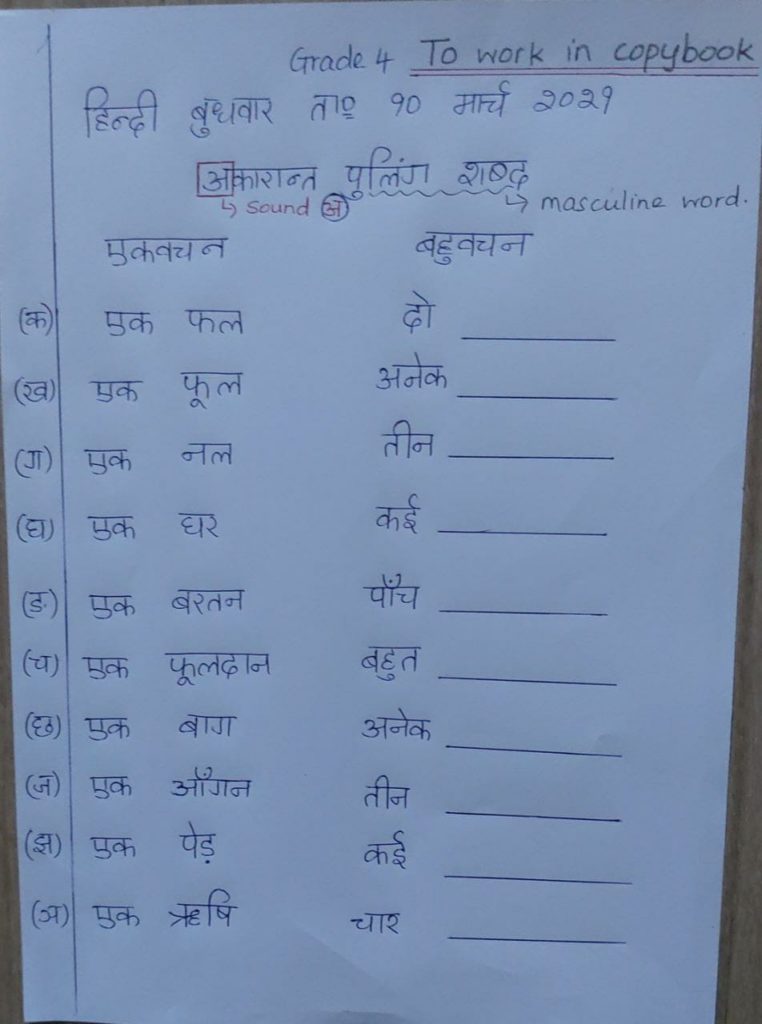 Grade 4 To work in copybook
हिन्दी बुधवार ता० १० मार्च २०२१
अकारान्त पुलिंग शब्द
↳ sound अ ↳ masculine word.
एकवचन बहुवचन
(क) एक फल दो ______
(ख) एक फूल अनेक ______
(ग) एक नल तीन ______
(घ) एक घर कई ______
(ङ) एक बरतन पाँच ______
(च) एक फूलदान बहुत ______
(छ) एक बाग अनेक ______
(ज) एक आँगन तीन ______
(झ) एक पेड़ कई ______
(ञ) एक ऋषि चार ______